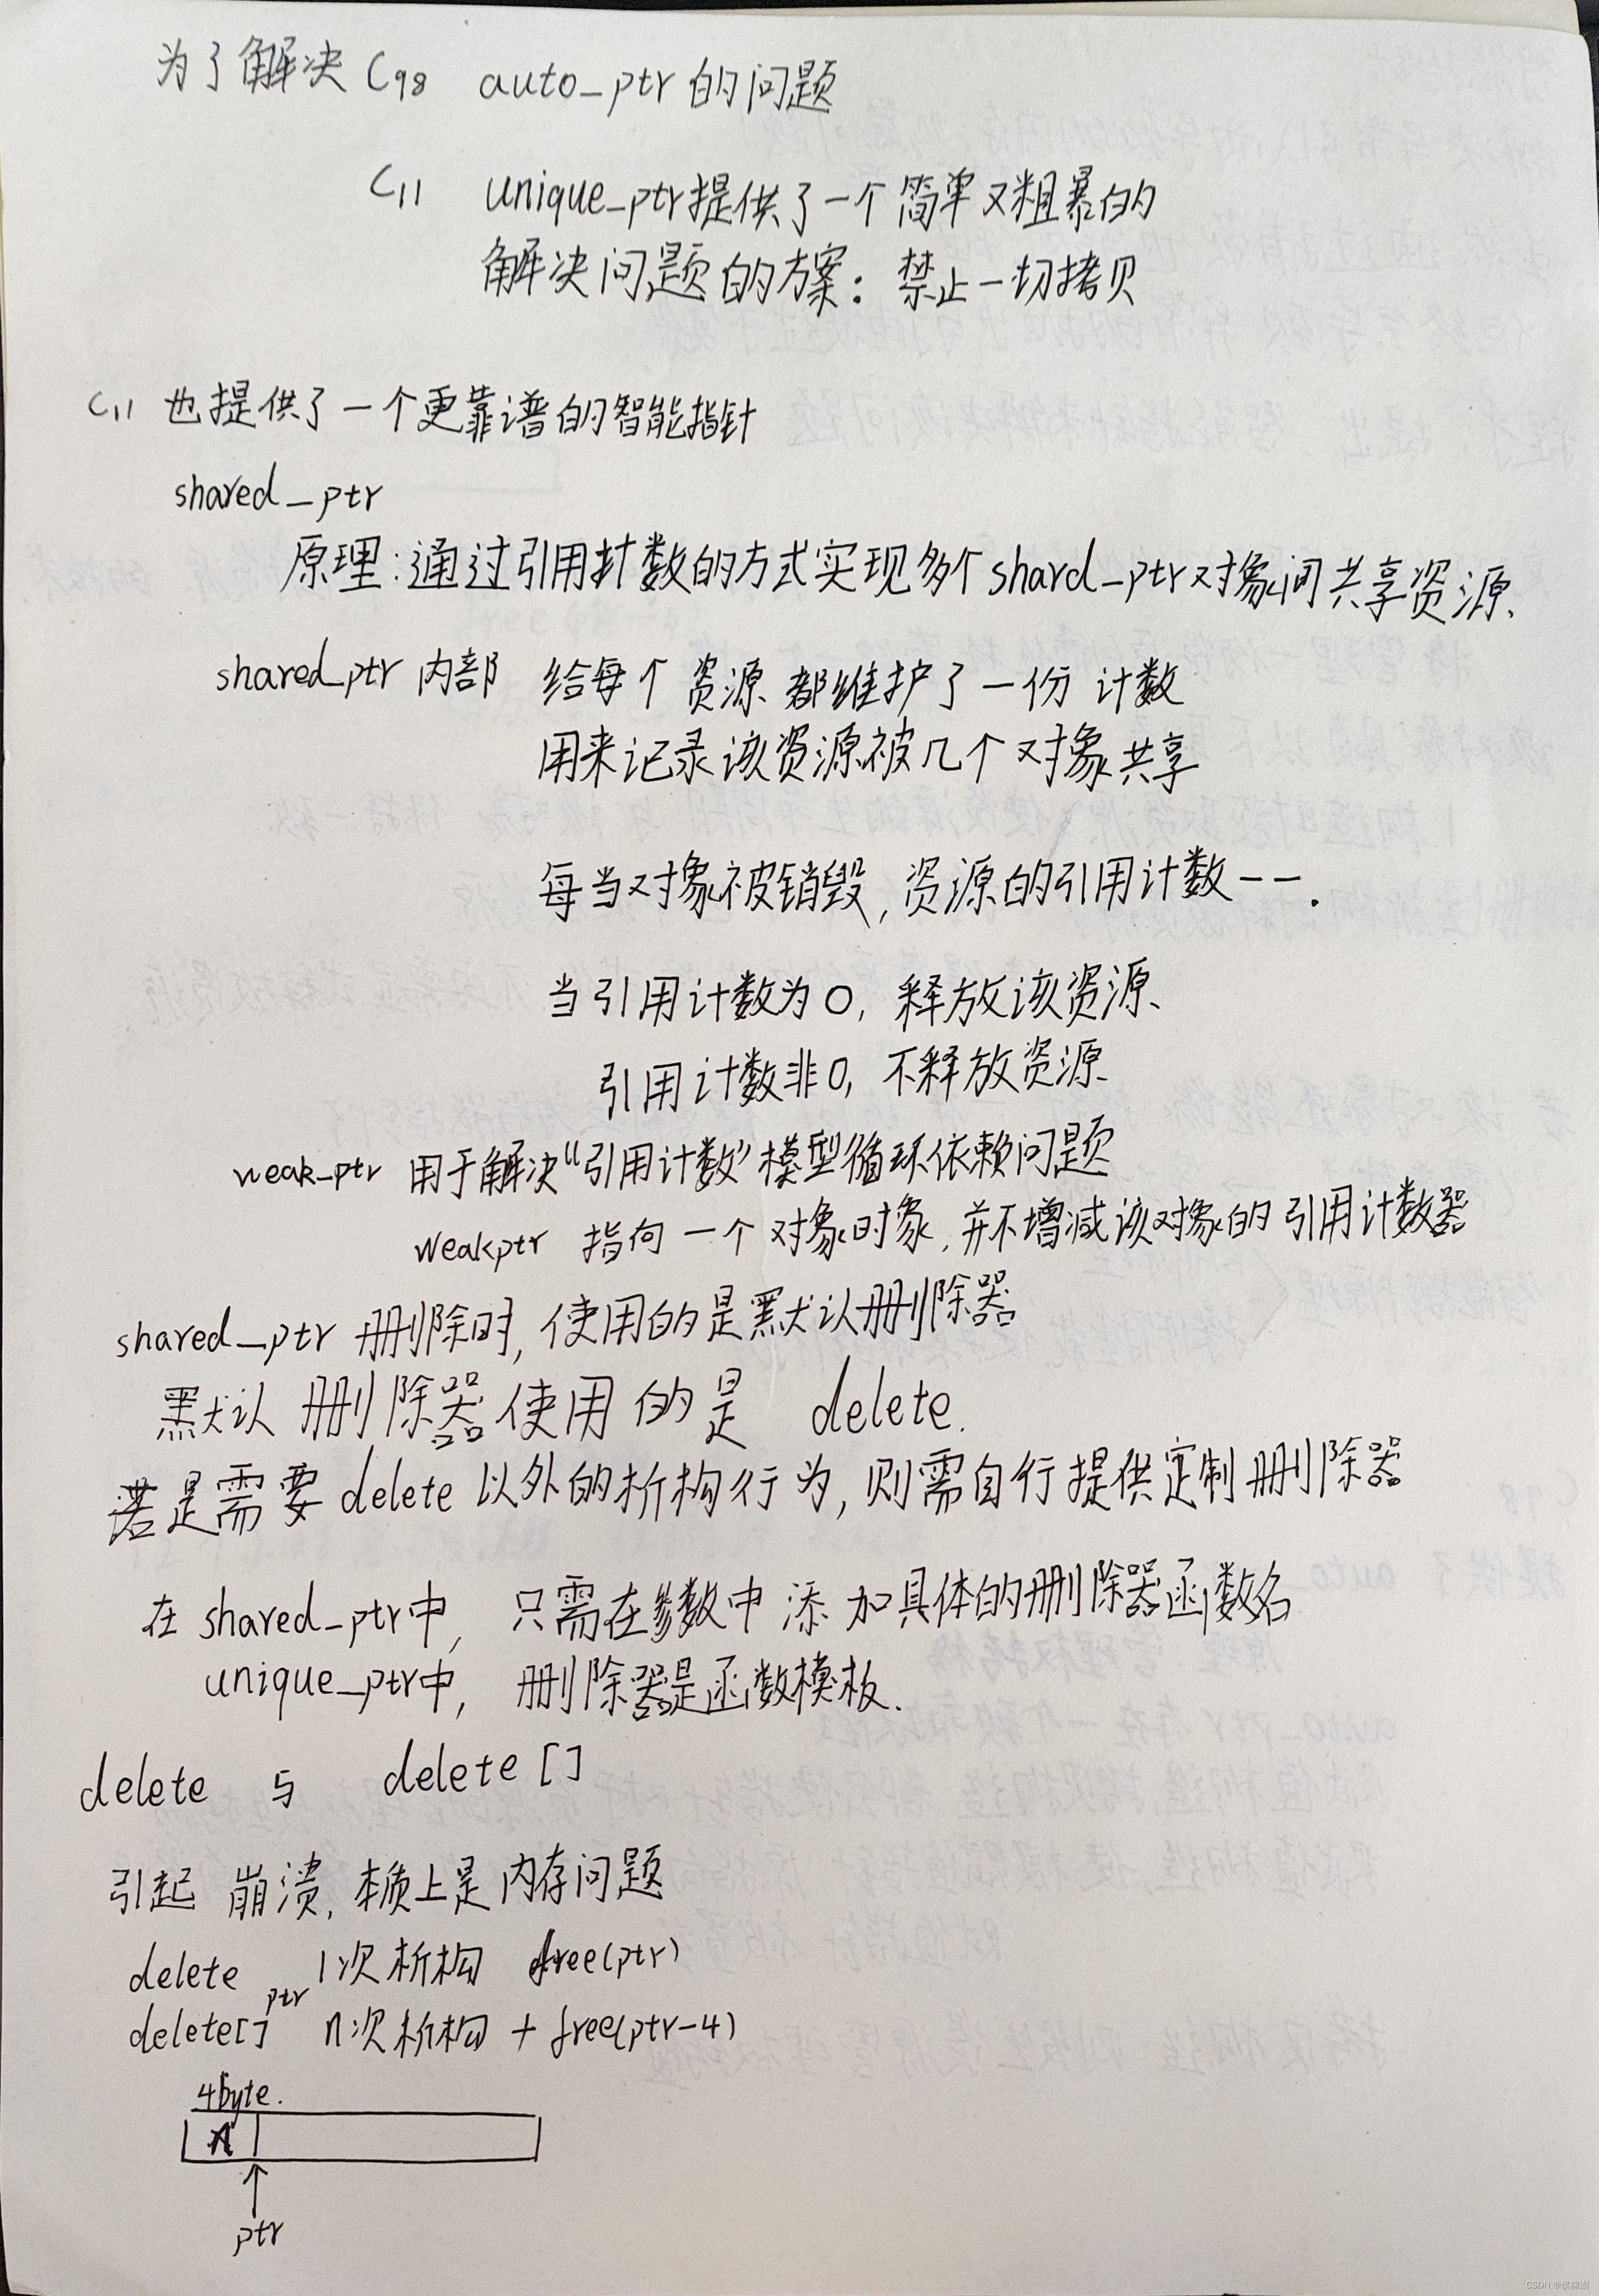 为了解决 C98 auto_ptr 的问题
C11 unique_ptr提供了一个简单又粗暴的
解决问题的方案：禁止一切拷贝
C11 也提供了一个更靠谱的智能指针
shared_ptr
原理：通过引用计数的方式实现多个shard_ptr对象间共享资源、
shared_ptr 内部 给每个 资源 都维护了一份 计数
用来记录该资源被几个对象共享
每当对象被销毁，资源的引用计数--．
当引用计数为0，释放该资源、
引用计数非0，不释放资源
weak_ptr 用于解决“引用计数”模型循环依赖问题
weakptr 指向 一个 对象时象，并不增减该对象的 引用计数器
shared_ptr 删除时，使用的是默认删除器
默认 删除器使用的是 delete.
若是需要 delete 以外的析构行为，则需自行提供定制删除器
在 shared_ptr中， 只需在参数中 添加具体的删除器函数名
unique_ptr中， 删除器是函数模板.
delete 与 delete []
引起 崩溃，本质上是内存问题
delete 1次析构 free(ptr)
delete[] ptr n次析构 + free(ptr-4)
4byte.
n
ptr
CSDN @侯稼渕